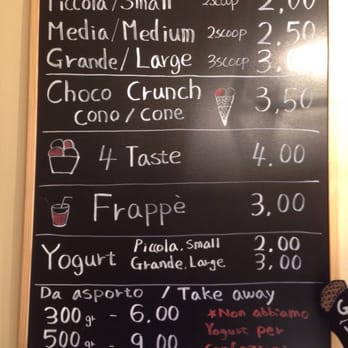 Piccola/Small 2scoop 2,00
Media/Medium 2scoop 2.50
Grande/Large 3scoop 3,
Choco Crunch 3,50
cono/cone
4 Taste 4.00
Frappè 3,00
Yogurt Piccola.Small 2.00
Grande.Large 3,00
Da asporto / Take away
300gr - 6.00
500gr - 9.00
*Non abbiamo
Yogurt per